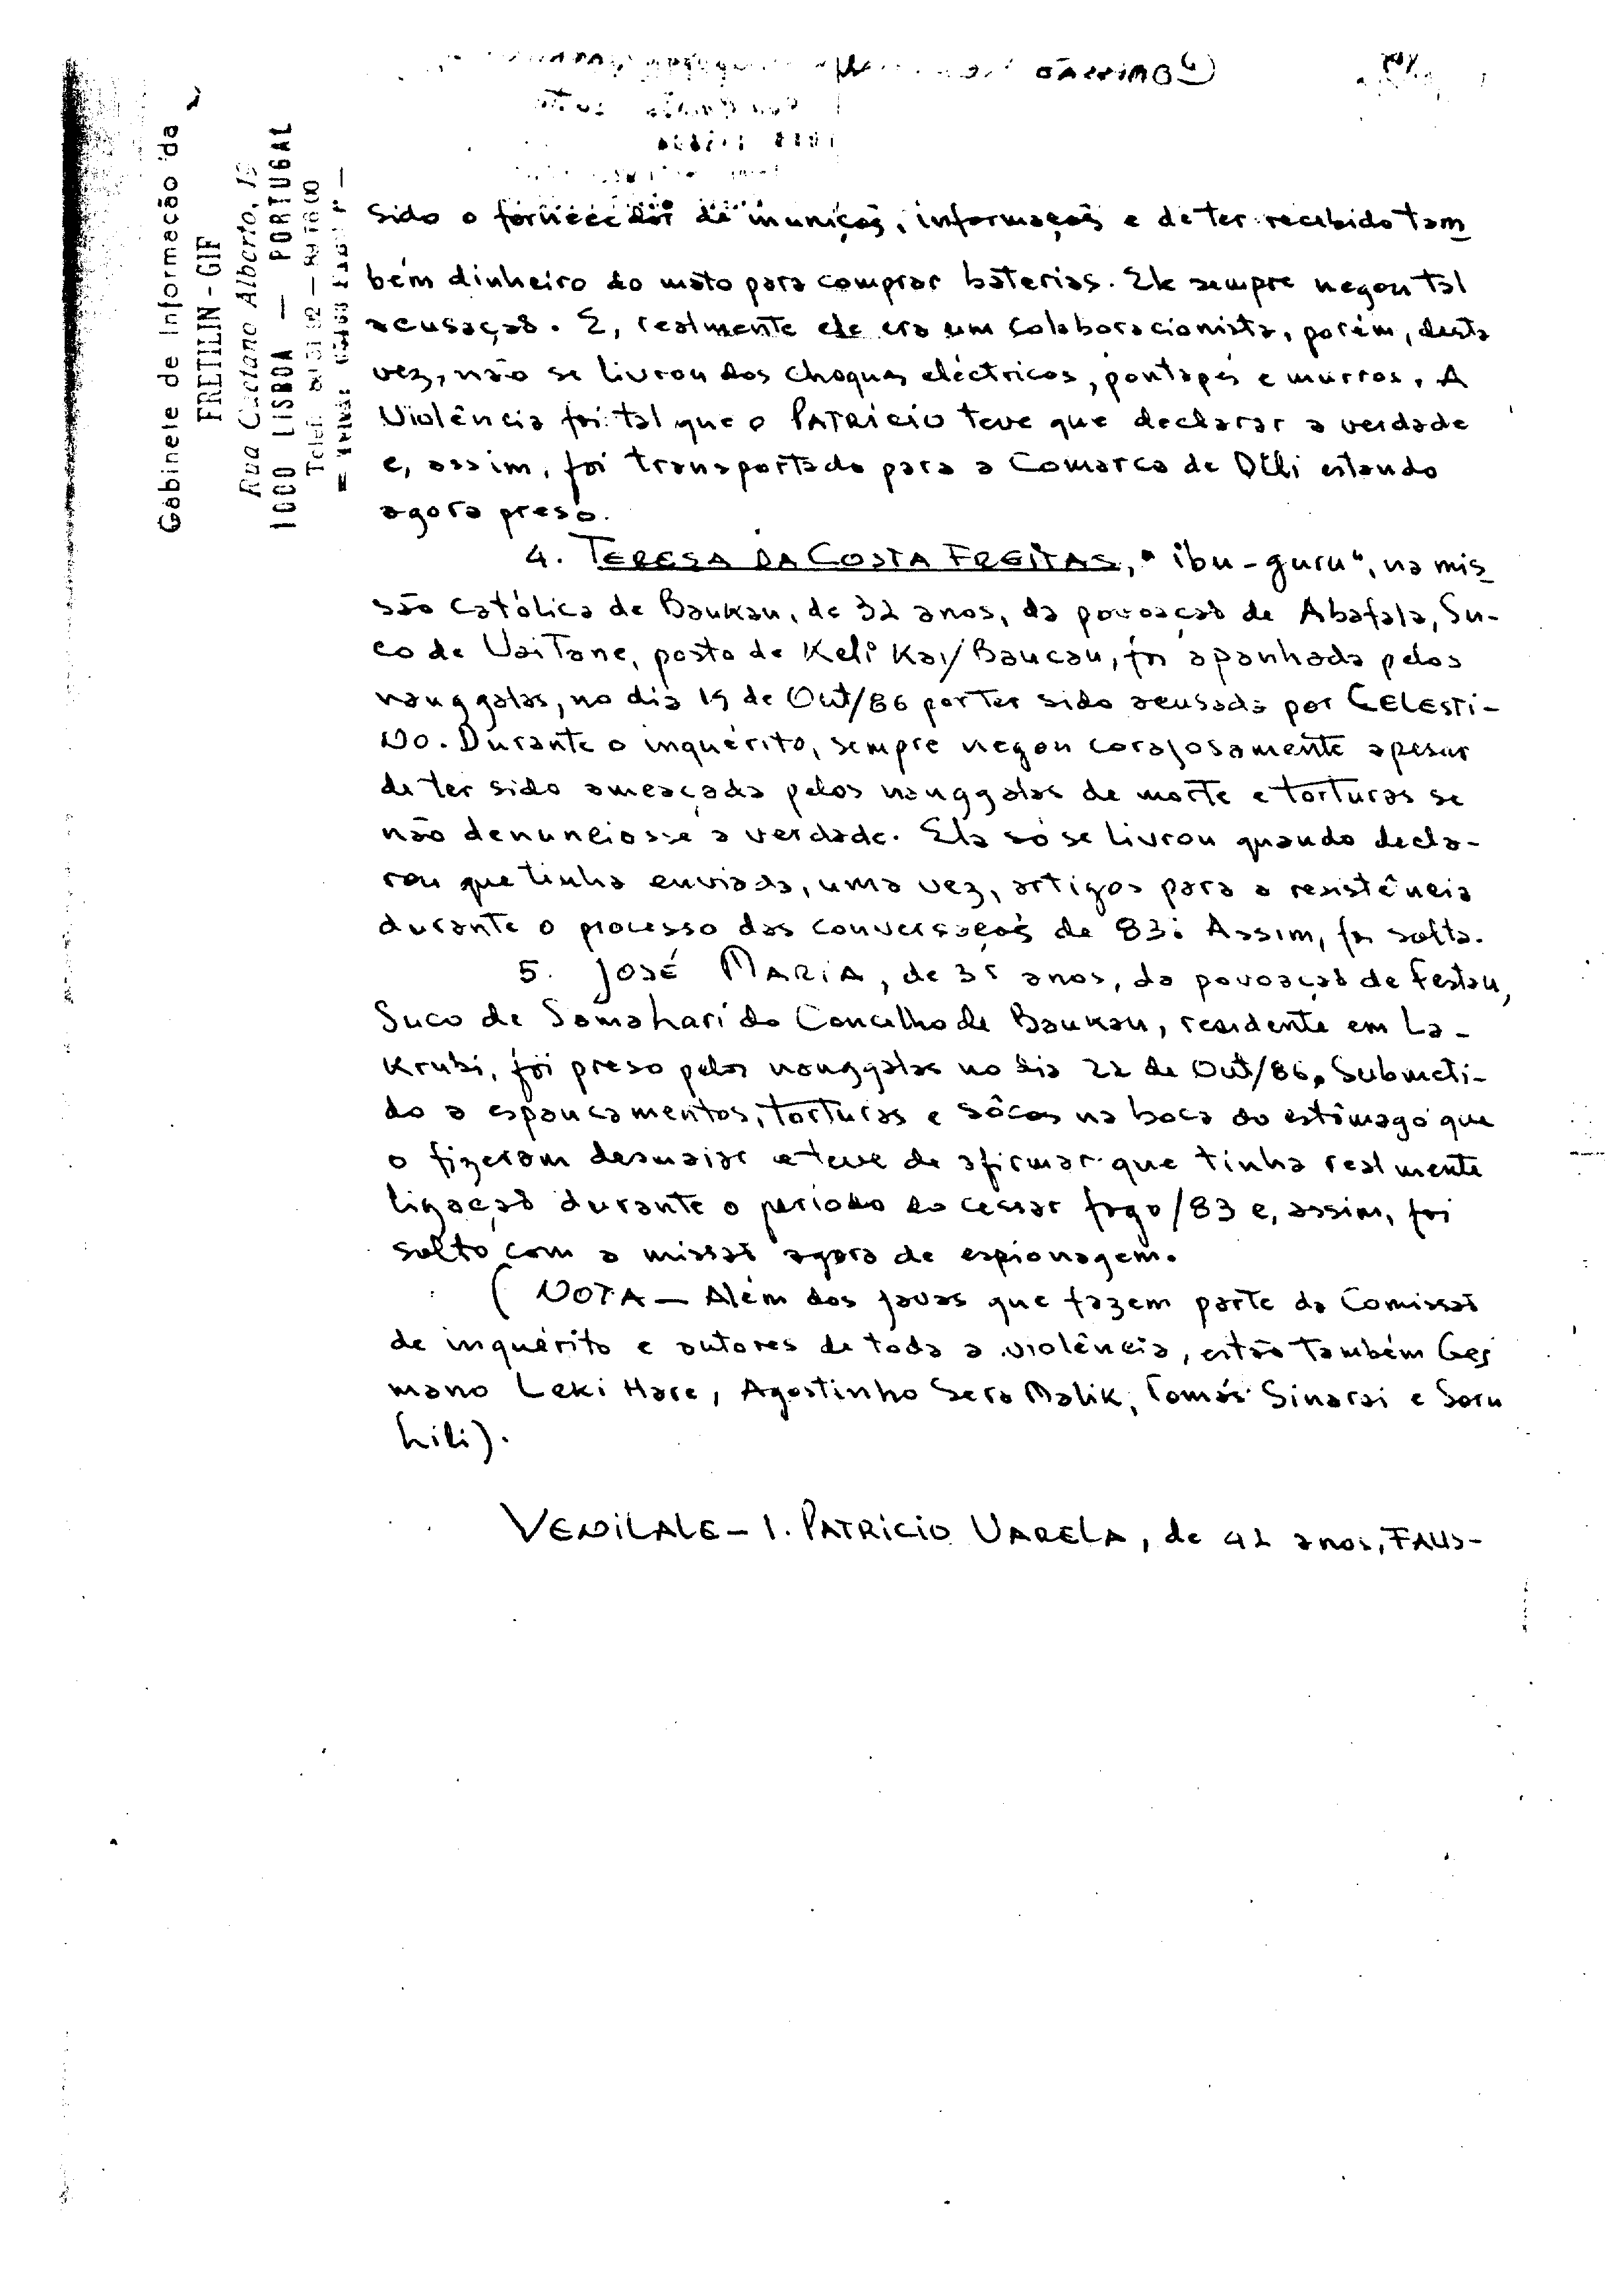 Gabinete de Informação da
FRETILIN - GIF
Rua Caetano Alberto,
1000 LISBOA — PORTUGAL
Telef.
sido o fornecedor de munições, informações e de ter recebido tam
bém dinheiro do mato para comprar baterias. Ele sempre negou tal
acusação. E, realmente ele era um colaboracionista, porém, desta
vez, não se livrou dos choques eléctricos, pontapés e murros. A
violência foi tal que o PATRÍCIO teve que declarar a verdade
e, assim, foi transportado para a Comarca de Díli estando
agora preso.
4. TERESA DA COSTA FREITAS, "ibu-guru", na mis
são católica de Baukau, de 32 anos, da povoação de Abafala, Su-
co de Uaitane, posto de Kelikai/Baucau, foi apanhada pelos
nanggalas, no dia 19 de Out/86 por ter sido acusada por CELESTI-
NO. Durante o inquérito, sempre negou corajosamente apesar
de ter sido ameaçada pelos nanggalas de morte e torturas se
não denunciasse a verdade. Ela só se livrou quando decla-
rou que tinha enviado, uma vez, artigos para a resistência
durante o processo das conversações de 83. Assim, foi solta.
5. JOSÉ MARIA, de 35 anos, da povoação de Festau,
Suco de Samahari do Concelho de Baukau, residente em La-
krubi, foi preso pelos nanggalas no dia 22 de Out/86. Submeti-
do a espancamentos, torturas e sôcos na boca do estômago que
o fizeram desmaiar e teve de afirmar que tinha realmente
ligação durante o período do cessar fogo/83 e, assim, foi
solto com a missão agora de espionagem.
(NOTA — Além dos javas que fazem parte da Comissão
de inquérito e autores de toda a violência, estão também Ger
mano Leki Hare, Agostinho Sera Malik, Tomás Sinarai e Soru
hili).
VENILALE - 1. PATRÍCIO VARELA, de 42 anos, FAUS-